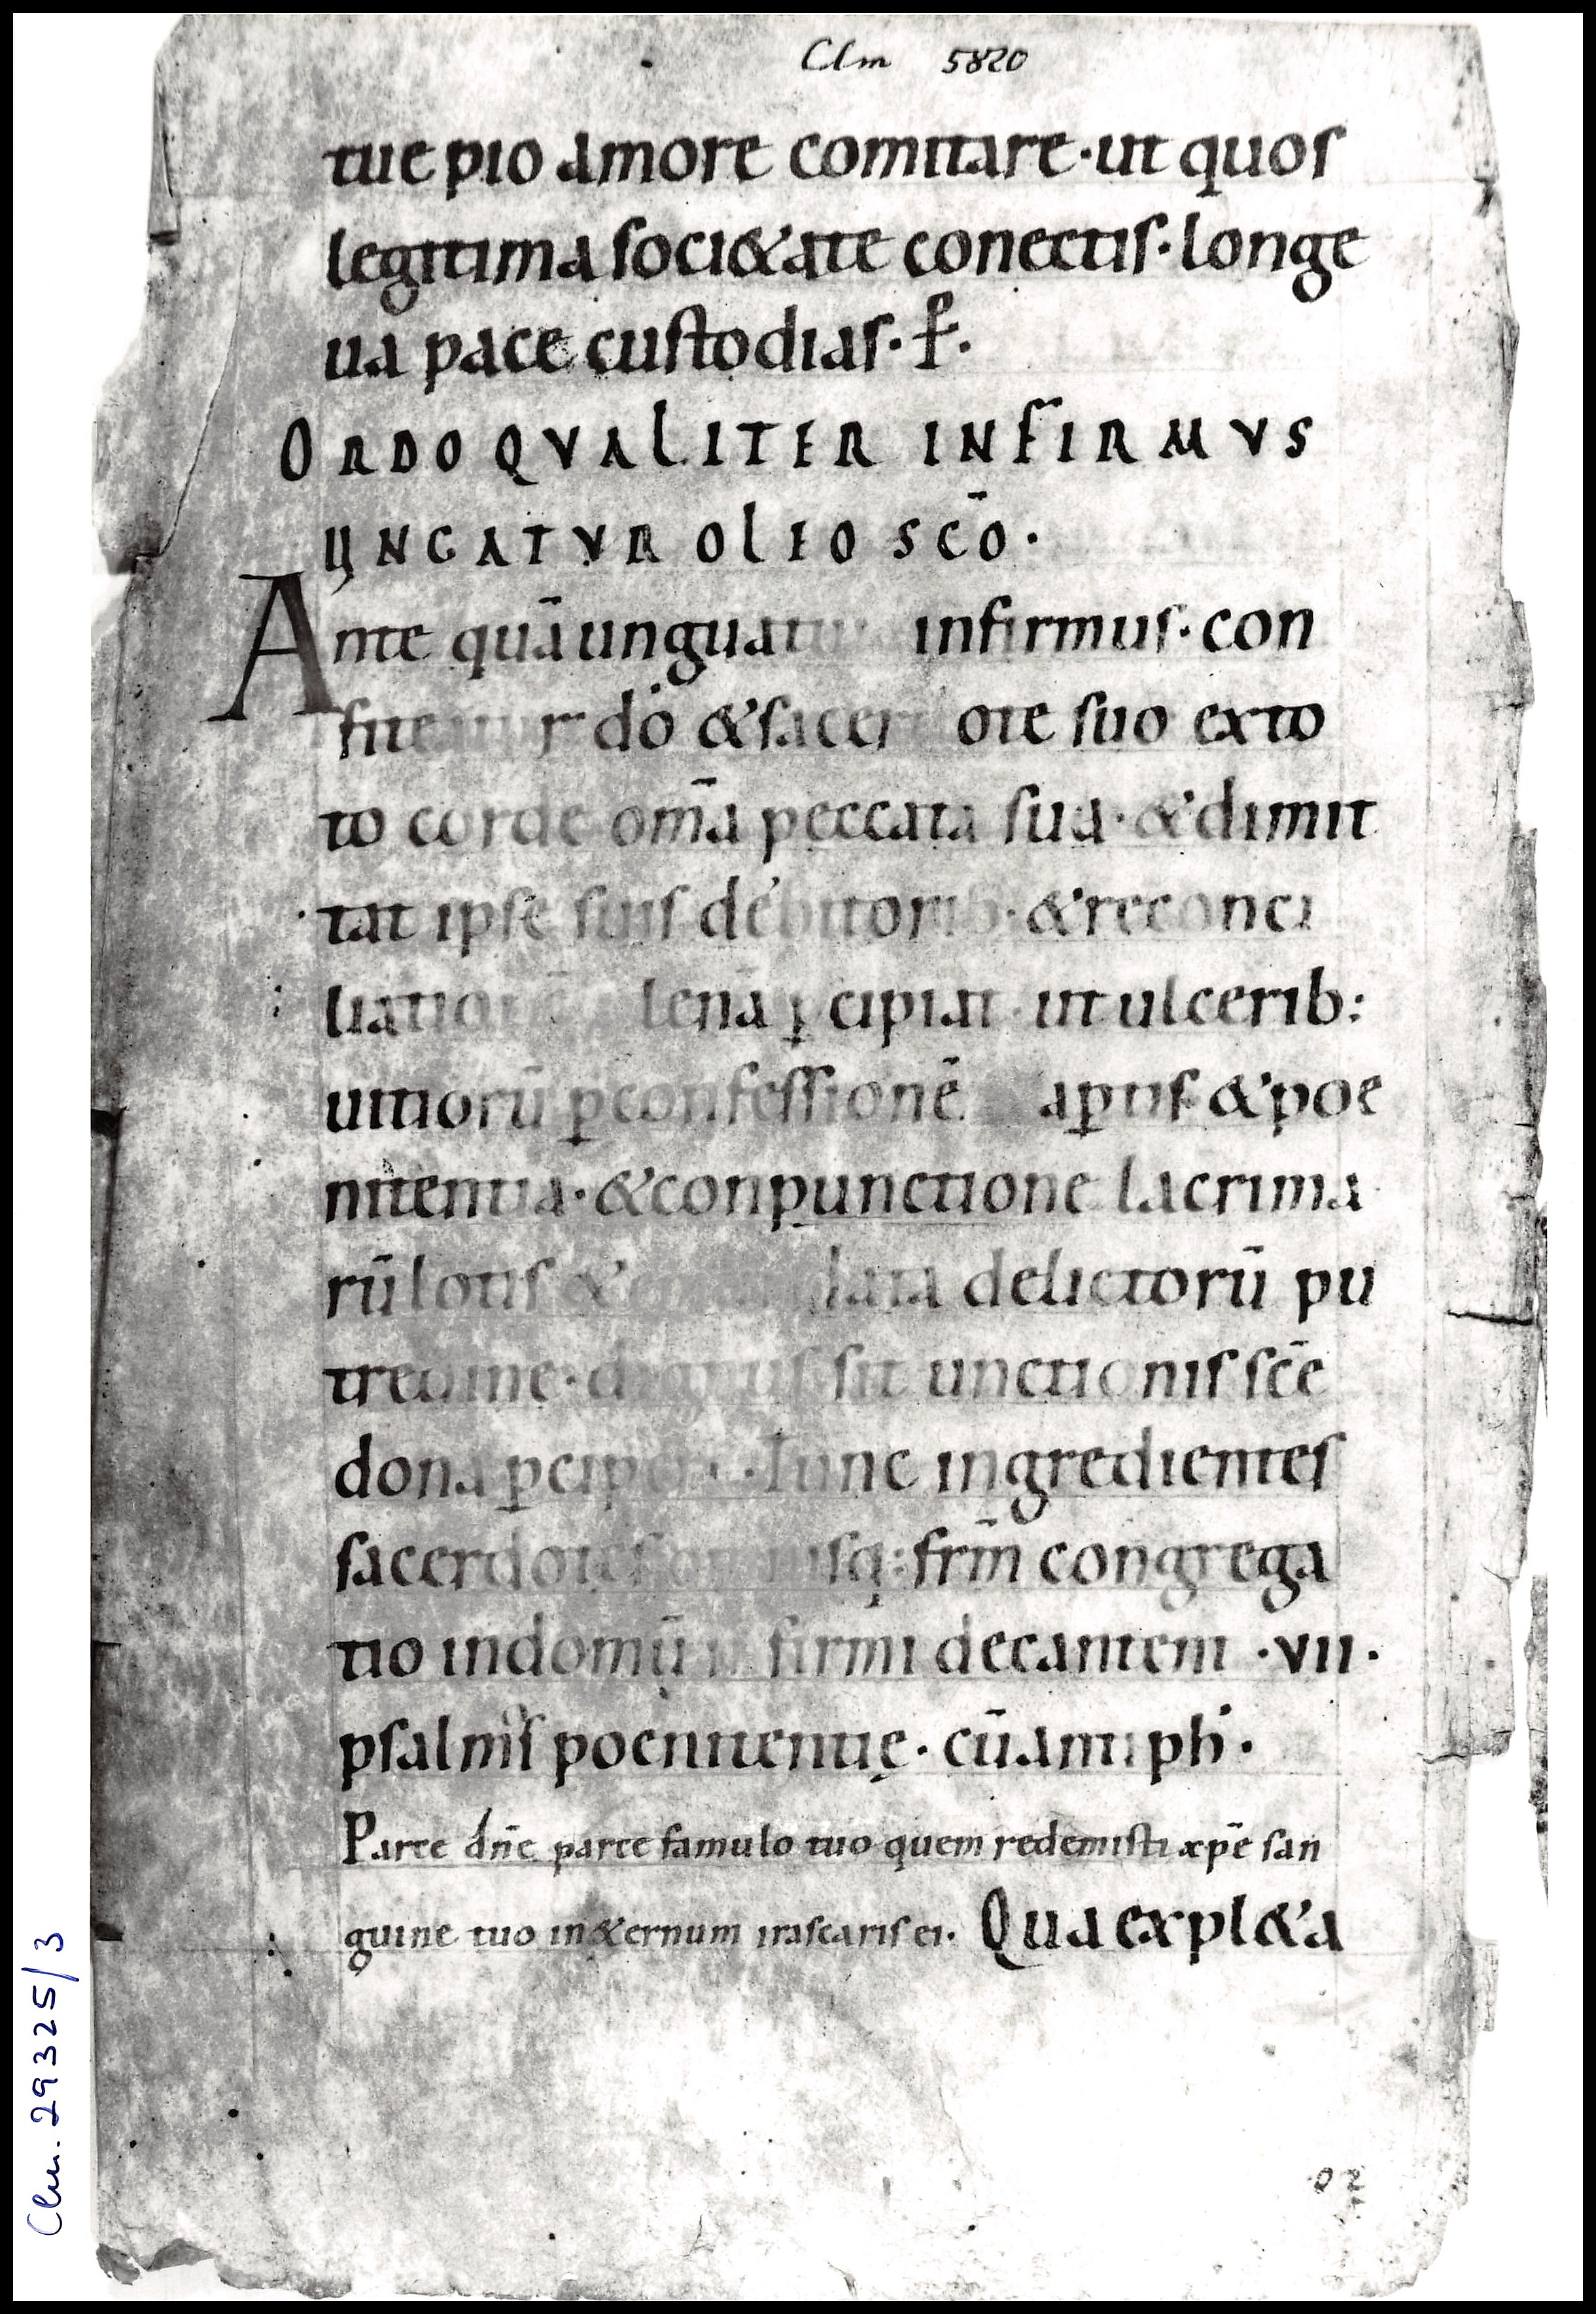 Clm 5820
tue pio amore comitare · ut quos
legitima soci&ate conectis · longe
ua pace custodias · p̄.
ORDO QVALITER INFIRMVS
UNGATVR OLEO SC̄O ·
Ante quā unguatu infirmus · con
fiteatur dō & sacerdote suo exto
to corde om̄a peccata sua · & dimit
tat ipse suis debitorib · & reconci
liationē plenā p̱cipiat ut ulcerib:
uitiorū ꝑ confessionē aꝑtis & poe
nitentia · & conpunctione lacrima
rū lotis & lata delictorū pu
tredine · dignus sit unctionis scē
dona ꝑcipere · Tunc ingredientes
sacerdotes omnisq: frm̄ congrega
tio in domū infirmi decantent · VII ·
psalmis poenitentię · cū antiph ·
Parce dn̄e parce famulo tuo quem redemisti xp̄e san
guine tuo in &ernum irascaris ei · Qua expl&a
Clm. 29325/3